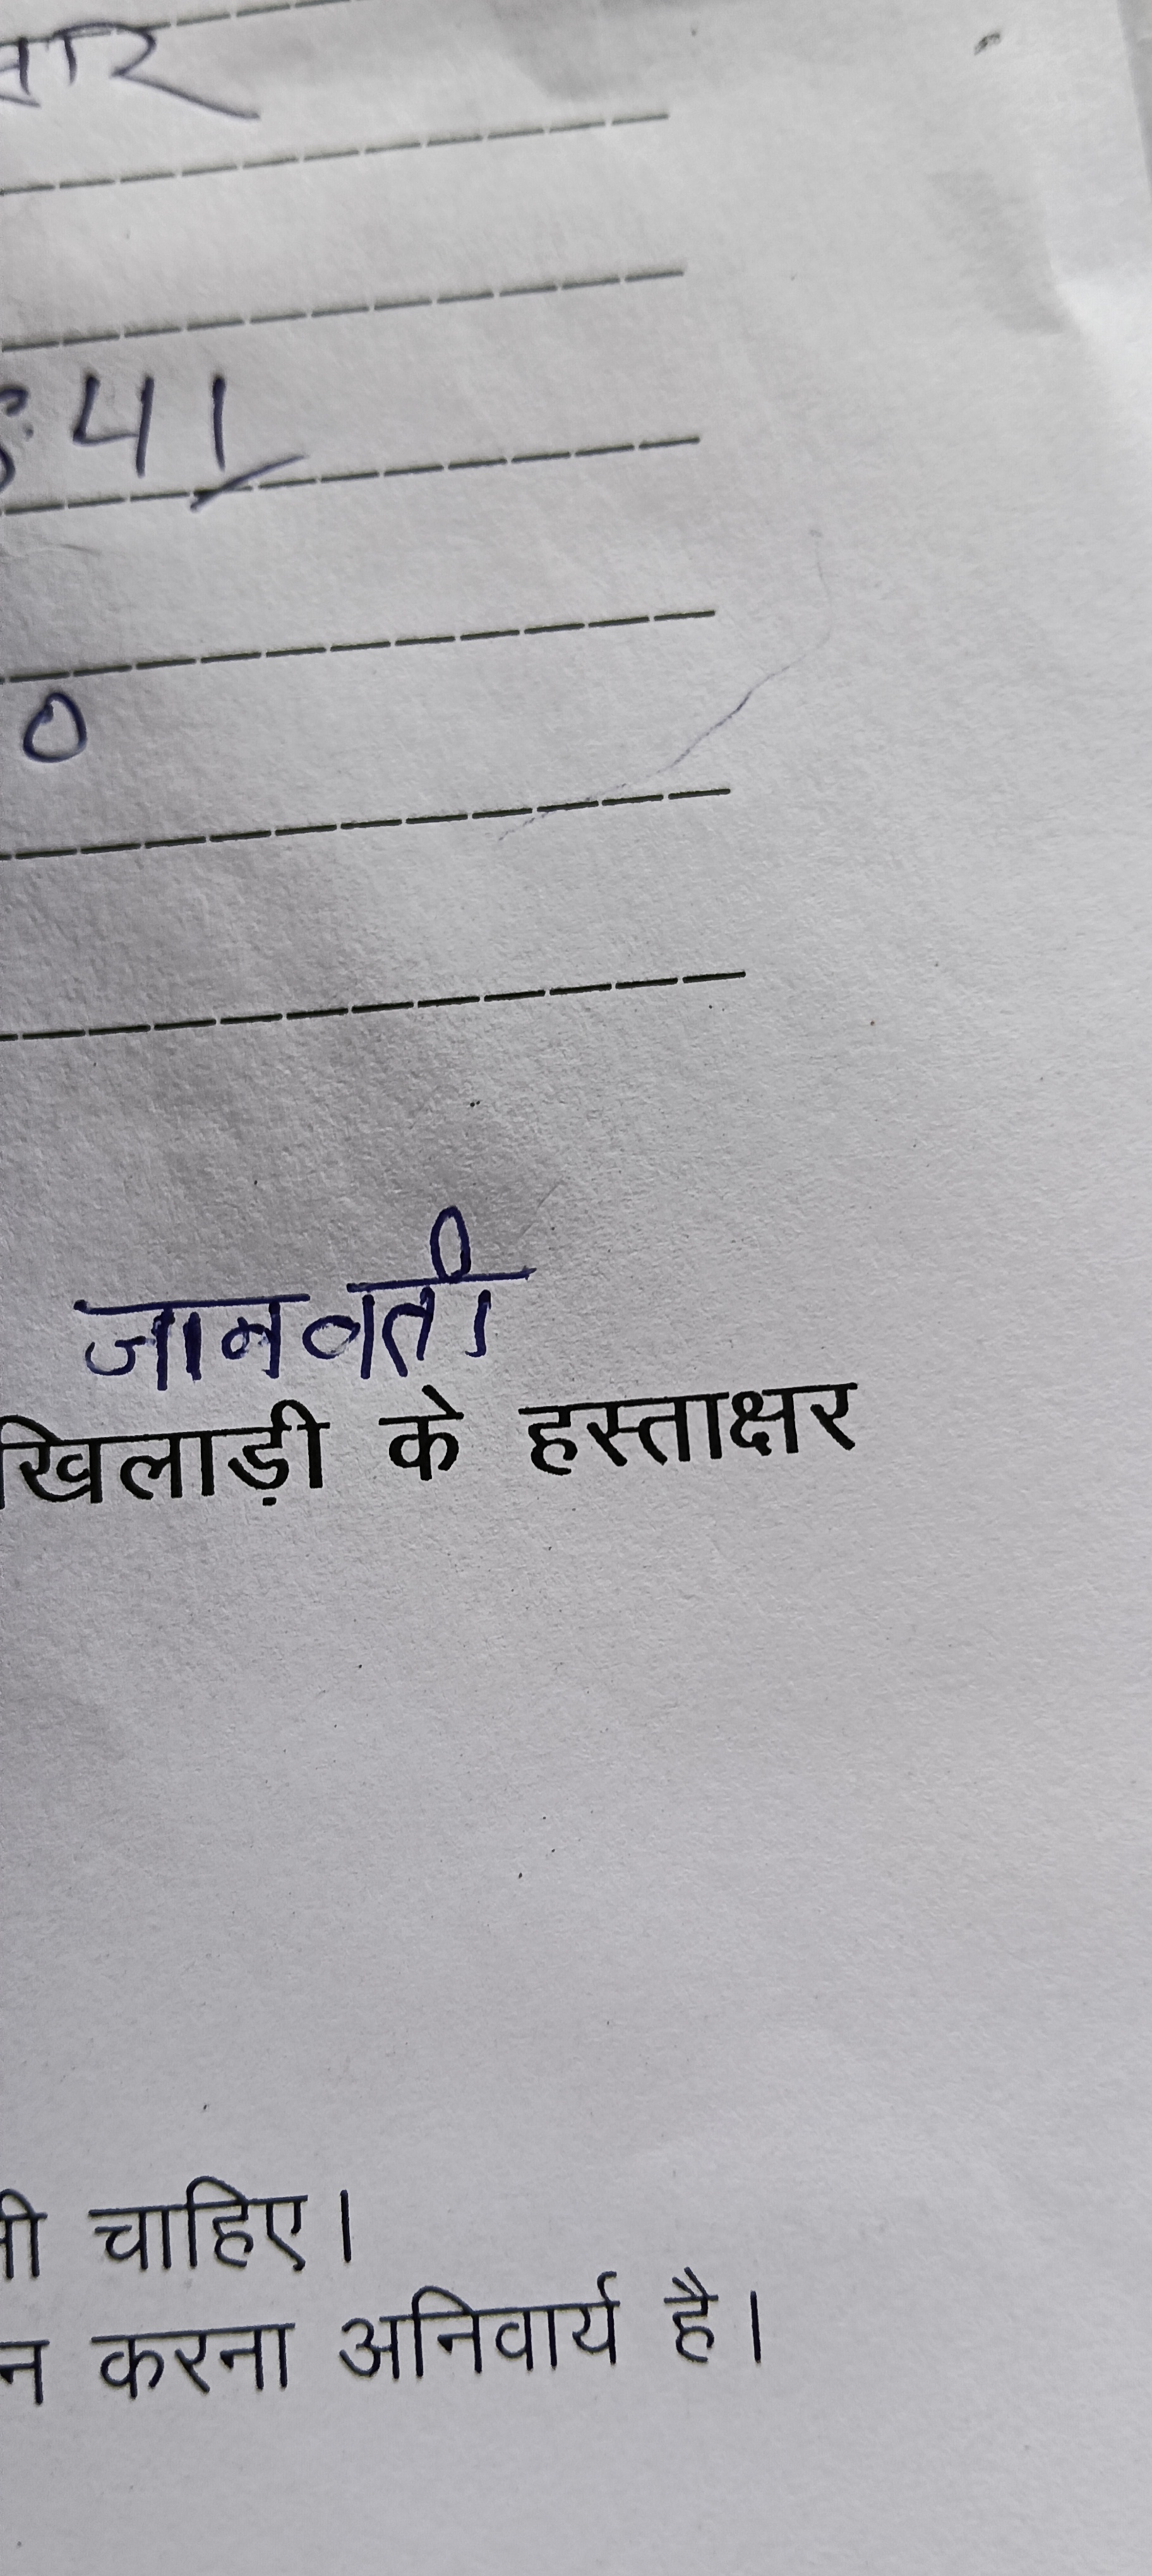 41
0
जानवती
खिलाड़ी के हस्ताक्षर
चाहिए।
न करना अनिवार्य है।